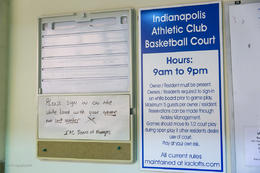 Please sign in on the
white board with your
unit number
IAC Board of Managers
Indianapolis
Athletic Club
Basketball Court
Hours:
9am to 9pm
Owner / Resident must be present.
Owners / Residents required to sign-in
on white board prior to game play.
Maximum 3 guests per owner / resident.
Reservations can be made through
Ardsley Management.
Games should move to 1/2 court play
during open play if other residents desire
use of court.
Play at your own risk.
All current rules
maintained at iaclofts.com